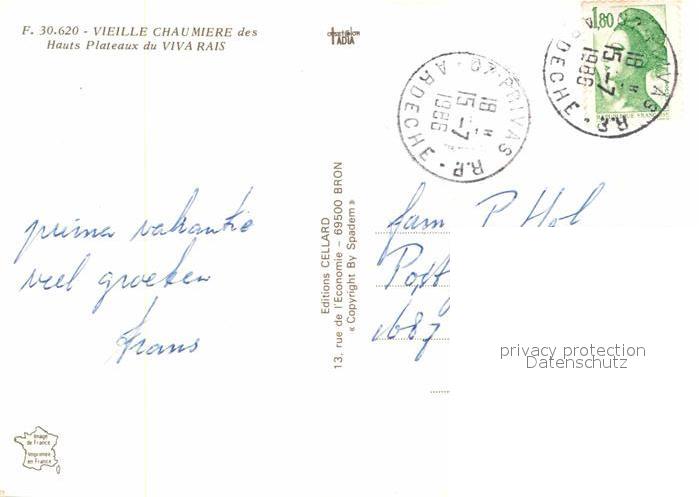 F. 30.620 - VIEILLE CHAUMIERE des
Hauts Plateaux du VIVARAIS
prima vakantie
veel groeten
Frans
Editions CELLARD
13, rue de l'Economie - 69500 BRON
« Copyright By Spadem »
Image
de France
Imprimée
en France
07 PRIVAS R.P.
18 H
15-7
1986
ARDECHE
1,80
PRIVAS R.P.
18 H
15-7
1986
ARDECHE
fam P Hol
Post
1687
privacy protection
Datenschutz